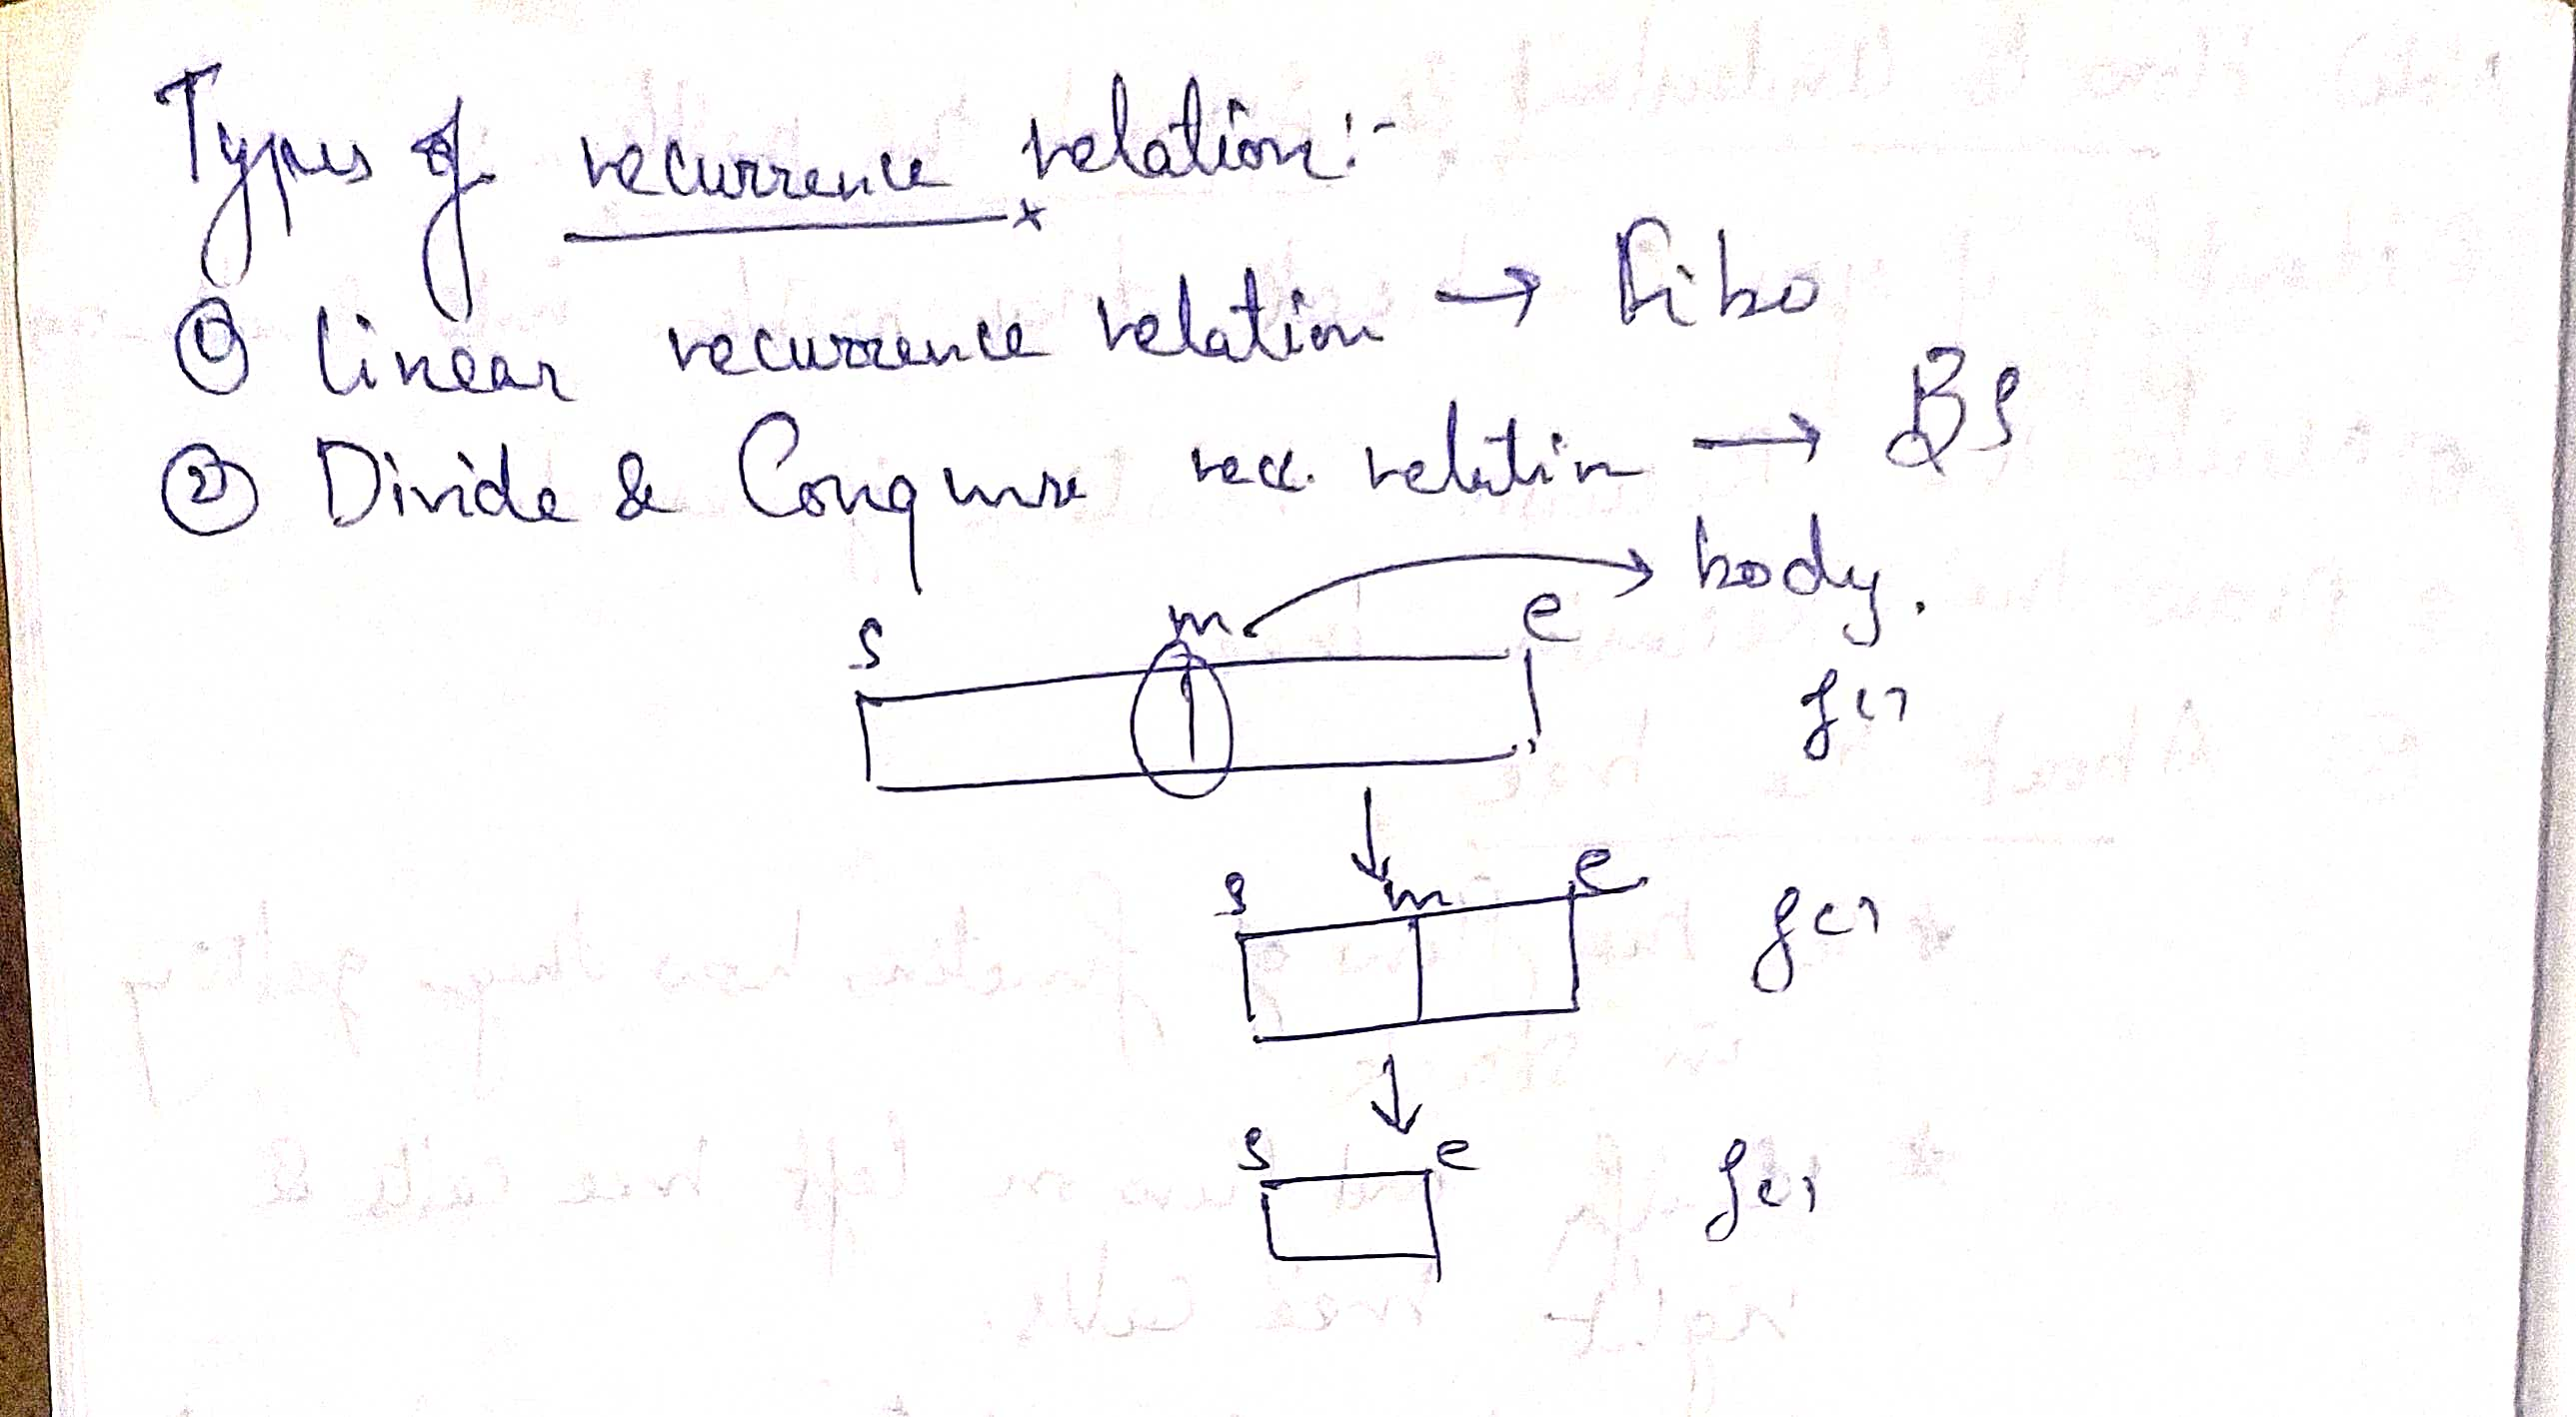 Types of recurrence relation:-
① linear recurrence relation → Fibo
② Divide & Conqure rec. relation → BS
s m e → body.
f()
s m e f()
s e f()